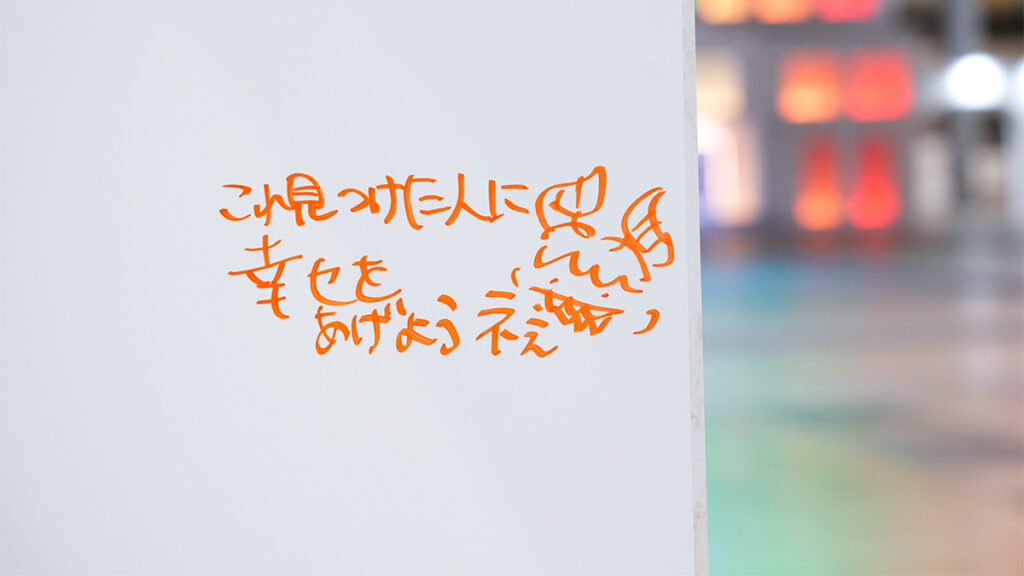 これ見つけた人に
幸せを
あげようネぇ